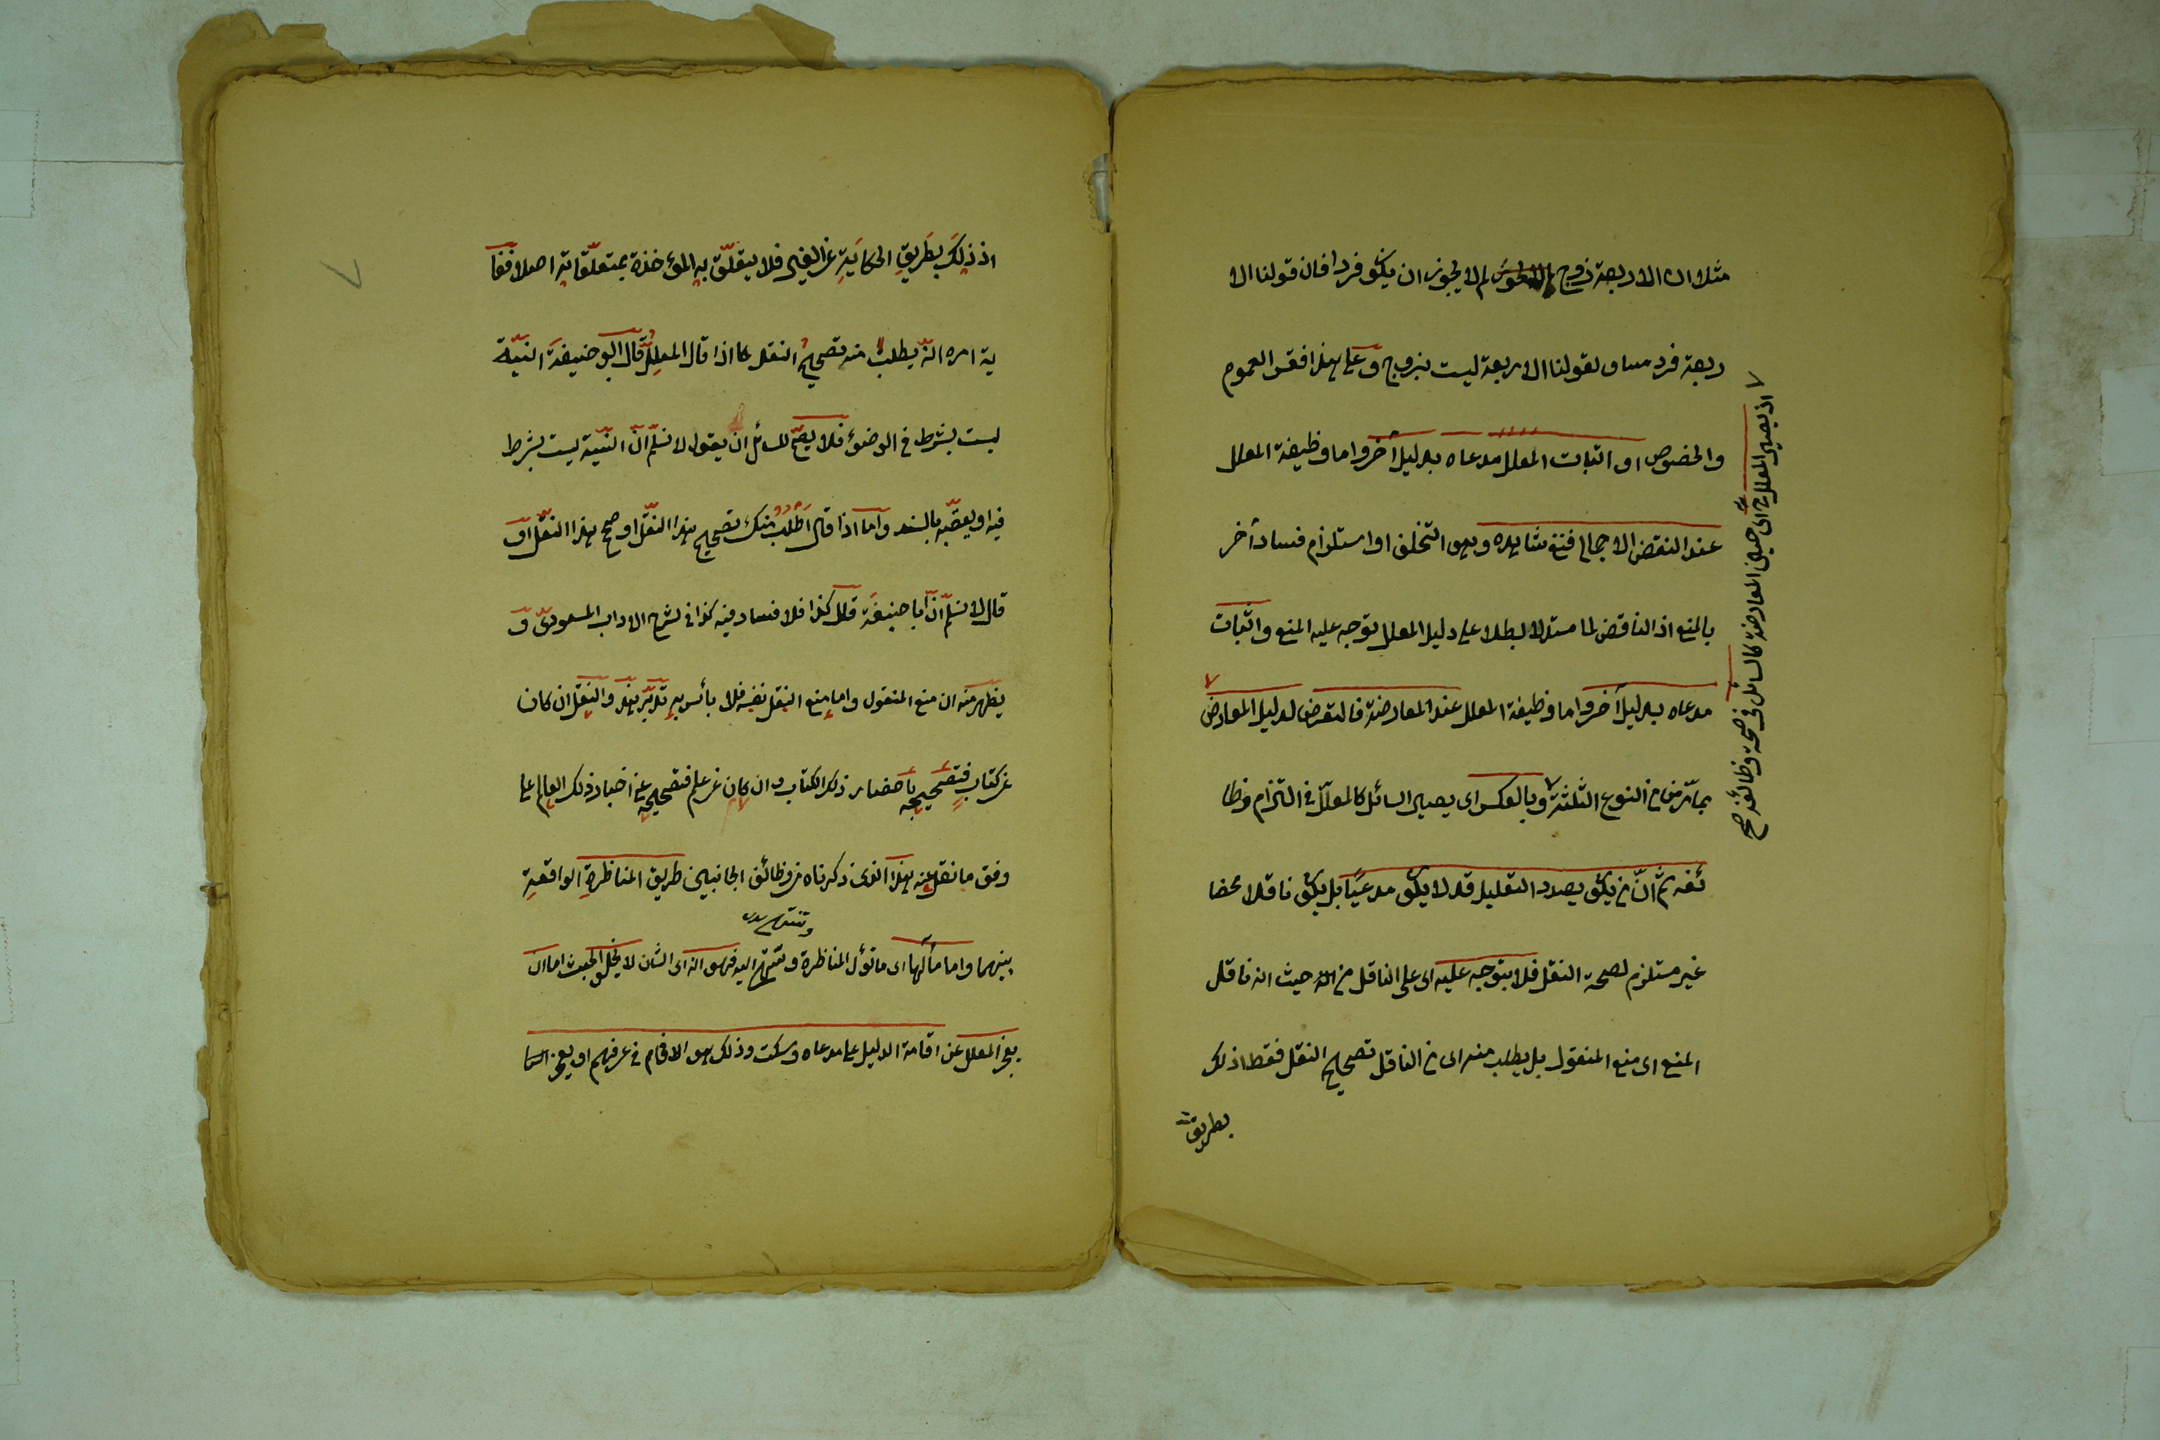 مثلا ان الاربعة زوج لم لا يجوز ان يكون فردا فان قولنا الا
ربعة فرد مساو لقولنا الاربعة ليست بزوج وعلى هذا فقس العموم
والخصوص او اثبات المعلل مدعاه بدليل آخر واما وظيفة المعلل
عند النقض الاجمالي فنفى شاهده وهو التخلف او استلزام فساد آخر
بالمنع اذ الناقض لما استدل لبطلا على دليل المعلل يتوجه عليه المنع واثبات
مدعاه بدليل آخر واما وظيفة المعلل عند المعارضة فالتعرض لدليل المعارض
بما مر من النوع الثلثة وبالعكس اى يصير السائل كالمعلل في التزام وظا
ئفه ثم ان من يكون بصدد التعليل قد لا يكون مدعيا بل يكون ناقلا محضا
غير مستلزم لصحة النقل فلا يتوجه عليه اى على الناقل من حيث انه ناقل
المنع اى منع المنقول بل يطلب منه اى من الناقل تصحيح النقل فقط اذ ذلك
بطريق
اذ يصير المعلل ح اى حين المعارضة كالسائل في صحة وظائفه صح
اذ ذلك بطريق الحكاية عن الغير فلا يتعلق به المؤخذة بمتعلقاته اصلا فغا
ية امره انه يطلب منه تصحيح النقل كما اذا قال المعلل قال ابو حنيفة النية
ليست بشرط في الوضوء فلا يصح للسائل ان يقول لا نسلم ان النية ليست بشرط
فيه او يعقبه بالسند واما اذا قال اطلب منك تصحيح هذا النقل او صحح هذا النقل او
قال لا نسلم ان ابا حنيفة قال كذا فلا فساد فيه كذا في شرح الاداب المسعودى و
يظهر منه ان منع المنقول واما منع النقل نفسه فلا بأس به تدبر هذا والنقل ان كان
عن كتاب فتصحيحه باحضار ذلك الكتاب وان كان عن علم فتصحيحه عن اخبار ذلك العالم على
وفق ما نقل عنه هذا الذى ذكرناه من وظائف الجانبين طريق المناظرة الواقعة
بينهما واما مآلها اى ما تؤل المناظرة وتنتهى اليه فهو انه اى الشان لا يخلو البحث اما ان
يعجز المعلل عن اقامة الدليل على مدعاه وسكت وذلك هو الافحام في عرفهم او يعجز السا